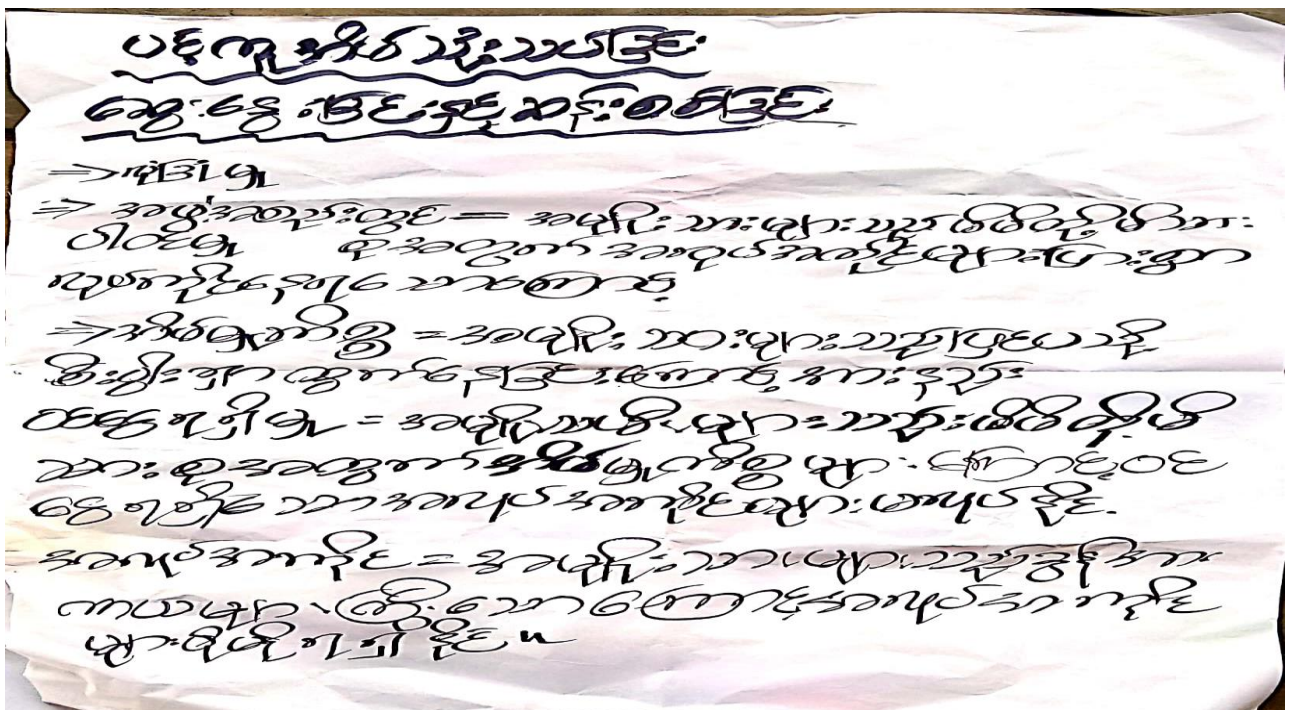 ပင့်ကူအိမ်သုံးသပ်ခြင်း
ဆွေးနွေးခြင်းနှင့်ဆန်းစစ်ခြင်း
⇒ကွဲပြားမှု
⇒ အဖွဲ့အစည်းတွင် = အမျိုးသားများသည် မိမိတို့မိသား
ပါဝင်မှု စုအတွက် အလုပ်အကိုင်များပြားစွာ
လုပ်ကိုင်နေရသောကြောင့်
⇒အိမ်မှုကိစ္စ = အမျိုးသားများသည်ပြင်ပသို့
စီးပွါးရှာထွက်နေခြင်းကြောင့်အားနည်း
ဝင်ငွေရရှိမှု = အမျိုးသမီးများသည်မိမိတို့မိ
သားစုအတွက်အိမ်မှုကိစ္စများကြောင့်ဝင်
ငွေရရှိသောအလုပ်အကိုင်များမလုပ်နိုင်.
အလုပ်အကိုင် = အမျိုးသားများသည်ခွန်အား
ကာယများကြီးသောကြောင့်အလုပ်အကိုင်
များပိုမိုရရှိနိုင်။